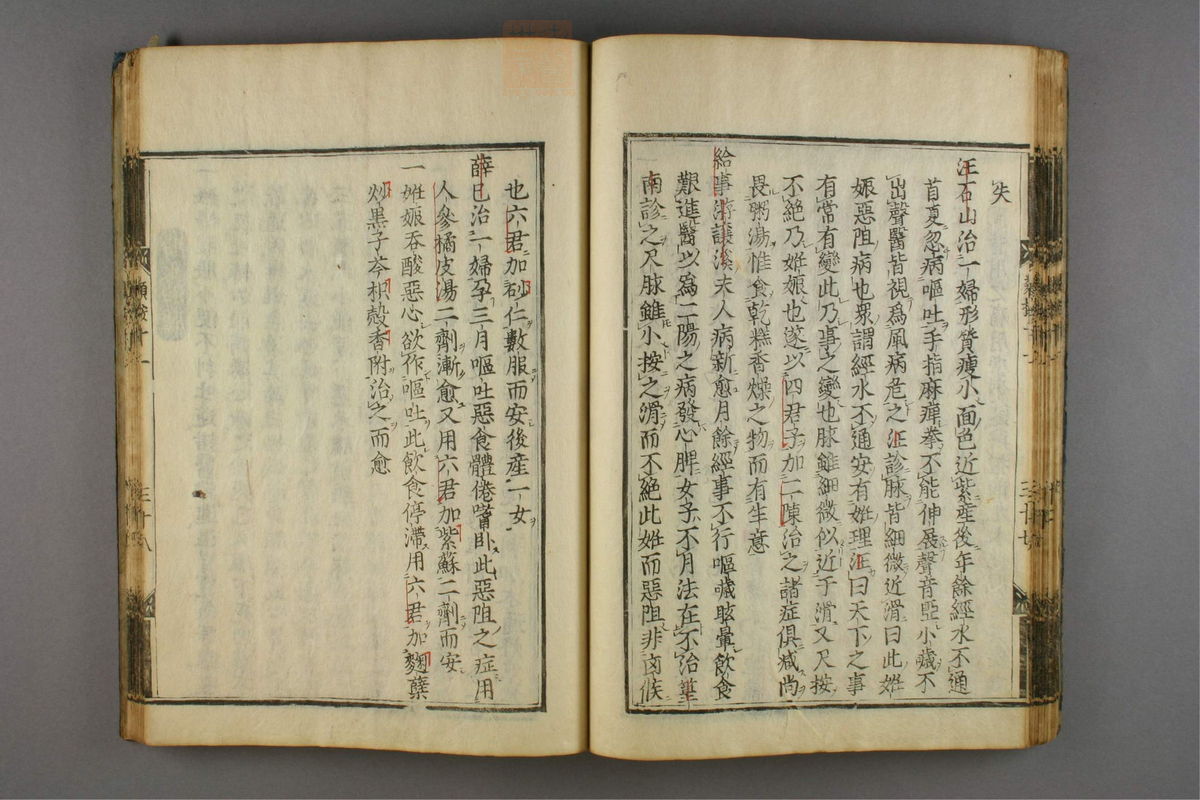 失
汪石山治一婦形質瘦小面色近紫產後年餘經水不通
首夏忽病嘔吐手指麻痺拳不能伸展聲音啞小𡁏不
出聲醫皆視爲風病危之汪診脉皆細微近滑曰此姙
娠惡阻病也衆謂經水不通安有姙理汪曰天下之事
有常有變此乃事之變也脉雖細微似近于滑又尺按
不絶乃姙娠也遂以四君子加二陳治之諸症俱减尚
畏粥湯惟食乾糕香燥之物而有生意
給事游讓溪夫人病新愈月餘經事不行嘔噦眩暈飲食
艱進醫以爲二陽之病發心脾女子不月法在不治
南診之尺脉雖小按之滑而不絶此姙而惡阻非凶候
也六君加砂仁數服而安後産一女
薛已治一婦孕三月嘔吐惡食體倦嗜卧此惡阻之症用
人參橘皮湯二劑漸愈又用六君加紫蘇二劑而安
一姙娠吞酸惡心欲作嘔吐此飲食停滯用六君加麴蘖
炒黑子芩枳殼香附治之而愈
三十八